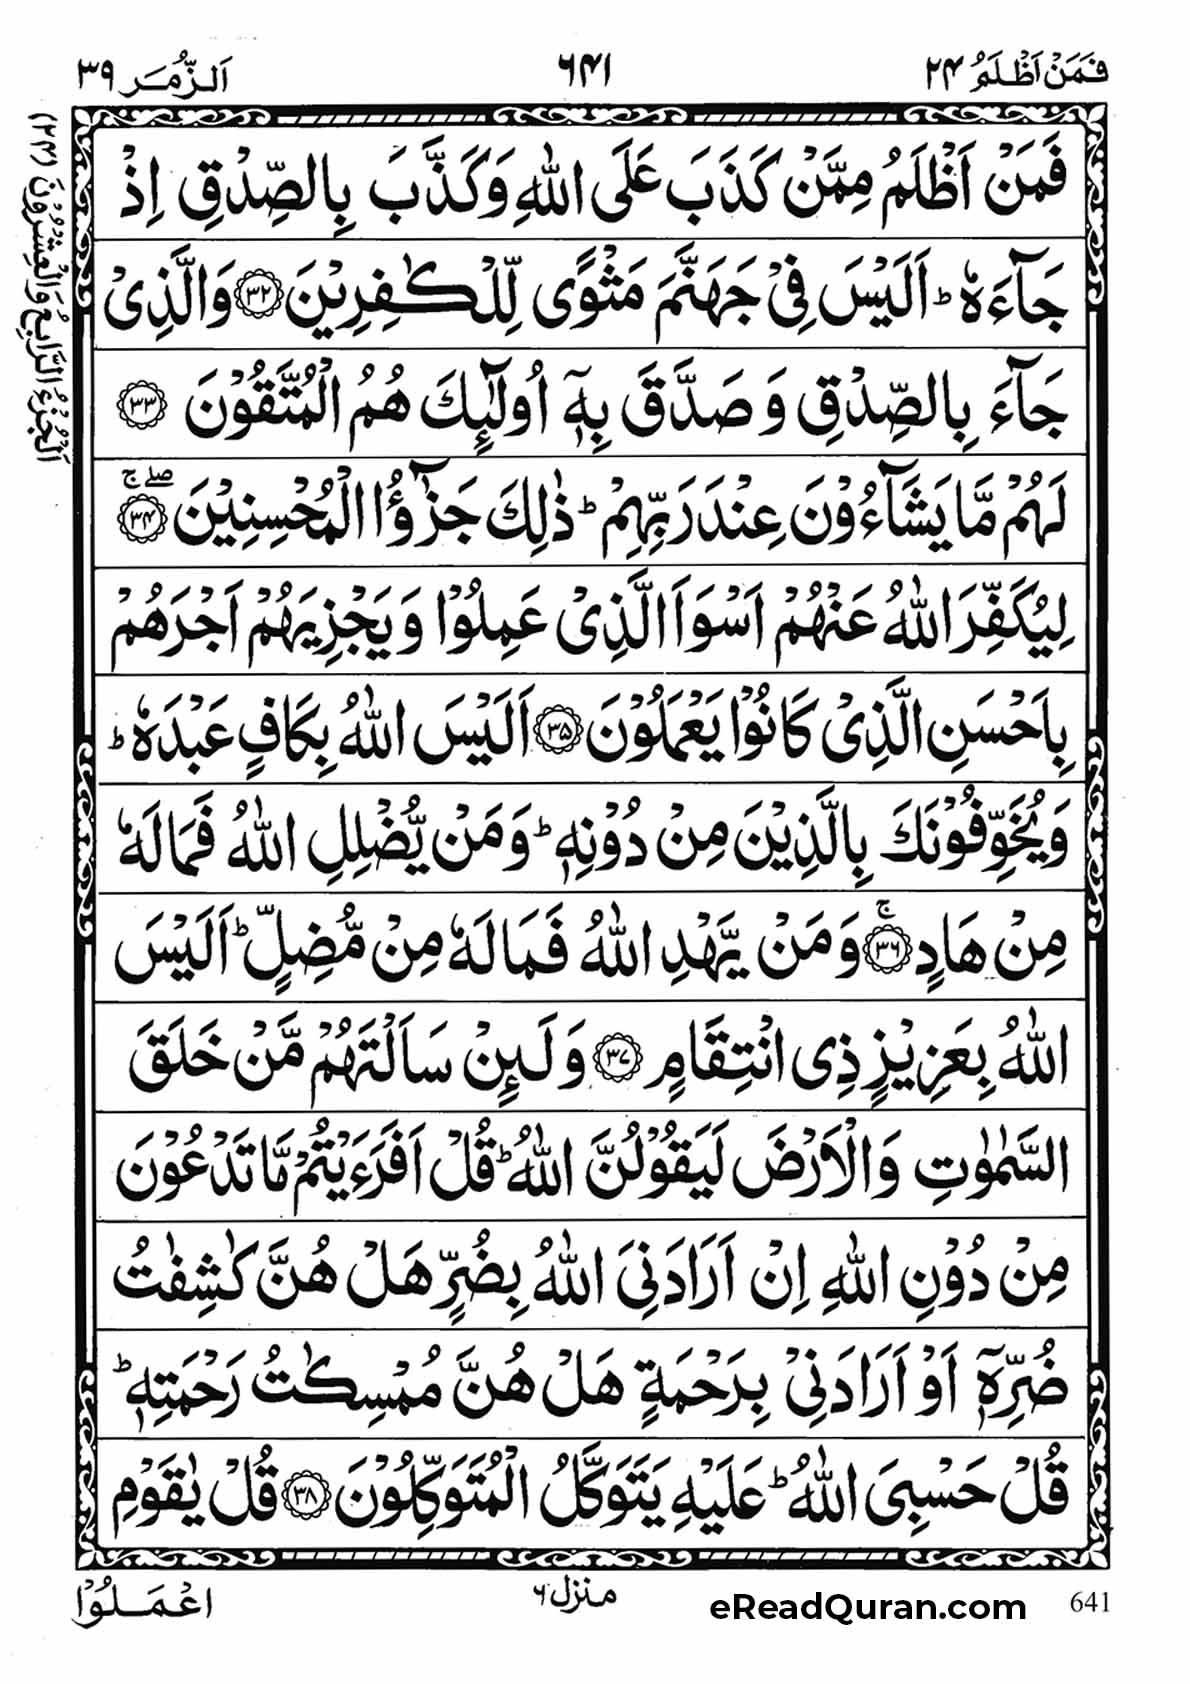 فَمَنْ اَظْلَمُ ٢٤
٦٤١
اَلزُّمَر ٣٩
اَلْجُزْءُ الرَّابِعُ وَالْعِشْرُوْنَ (٢٤)
فَمَنْ اَظْلَمُ مِمَّنْ كَذَبَ عَلَى اللّٰهِ وَكَذَّبَ بِالصِّدْقِ اِذْ
جَآءَهٗ ؕ اَلَيْسَ فِيْ جَهَنَّمَ مَثْوًى لِّلْكٰفِرِيْنَ ﴿۳۲﴾ وَالَّذِيْ
جَآءَ بِالصِّدْقِ وَصَدَّقَ بِهٖۤ اُولٰٓئِكَ هُمُ الْمُتَّقُوْنَ ﴿۳۳﴾
لَهُمْ مَّا يَشَآءُوْنَ عِنْدَ رَبِّهِمْ ؕ ذٰلِكَ جَزٰٓؤُا الْمُحْسِنِيْنَ ﴿۳۴﴾ صلے ج
لِيُكَفِّرَ اللّٰهُ عَنْهُمْ اَسْوَاَ الَّذِيْ عَمِلُوْا وَيَجْزِيَهُمْ اَجْرَهُمْ
بِاَحْسَنِ الَّذِيْ كَانُوْا يَعْمَلُوْنَ ﴿۳۵﴾ اَلَيْسَ اللّٰهُ بِكَافٍ عَبْدَهٗ ؕ
وَيُخَوِّفُوْنَكَ بِالَّذِيْنَ مِنْ دُوْنِهٖ ؕ وَمَنْ يُّضْلِلِ اللّٰهُ فَمَا لَهٗ
مِنْ هَادٍ ﴿۳۶﴾ ۚ وَمَنْ يَّهْدِ اللّٰهُ فَمَا لَهٗ مِنْ مُّضِلٍّ ؕ اَلَيْسَ
اللّٰهُ بِعَزِيْزٍ ذِي انْتِقَامٍ ﴿۳۷﴾ وَلَئِنْ سَاَلْتَهُمْ مَّنْ خَلَقَ
السَّمٰوٰتِ وَالْاَرْضَ لَيَقُوْلُنَّ اللّٰهُ ؕ قُلْ اَفَرَءَيْتُمْ مَّا تَدْعُوْنَ
مِنْ دُوْنِ اللّٰهِ اِنْ اَرَادَنِيَ اللّٰهُ بِضُرٍّ هَلْ هُنَّ كٰشِفٰتُ
ضُرِّهٖۤ اَوْ اَرَادَنِيْ بِرَحْمَةٍ هَلْ هُنَّ مُمْسِكٰتُ رَحْمَتِهٖ ؕ
قُلْ حَسْبِيَ اللّٰهُ ؕ عَلَيْهِ يَتَوَكَّلُ الْمُتَوَكِّلُوْنَ ﴿۳۸﴾ قُلْ يٰقَوْمِ
اعْمَلُوْا
منزل ٦
eReadQuran.com
641